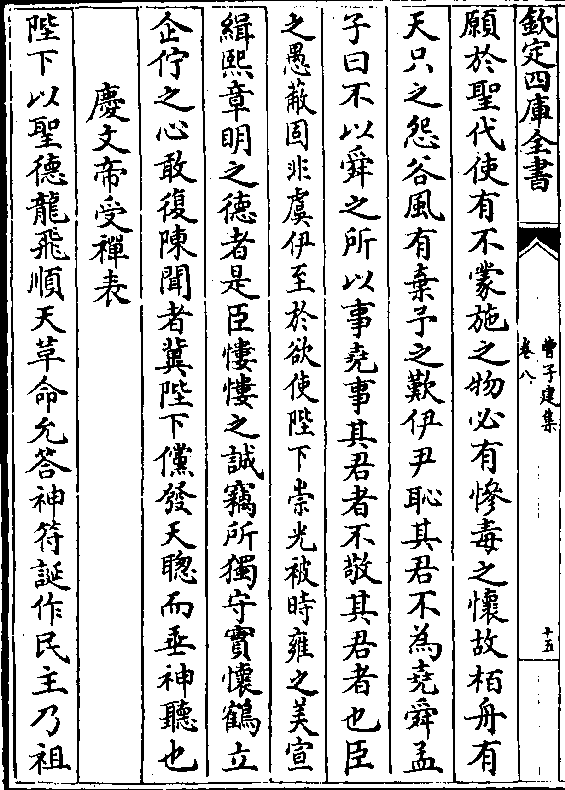 欽定四庫全書
曹子建集
卷八
十五
願於聖代使有不蒙施之物必有慘毒之懷故栢舟有
天只之怨谷風有棄予之歎伊尹恥其君不為堯舜孟
子曰不以舜之所以事堯事其君者不敬其君者也臣
之愚蔽固非虞伊至於欲使陛下崇光被時雍之美宣
緝熙章明之德者是臣慺慺之誠竊所獨守實懷鶴立
企佇之心敢復陳聞者冀陛下儻發天聰而垂神聽也
慶文帝受禪表
陛下以聖德龍飛順天革命允答神符誕作民主乃祖